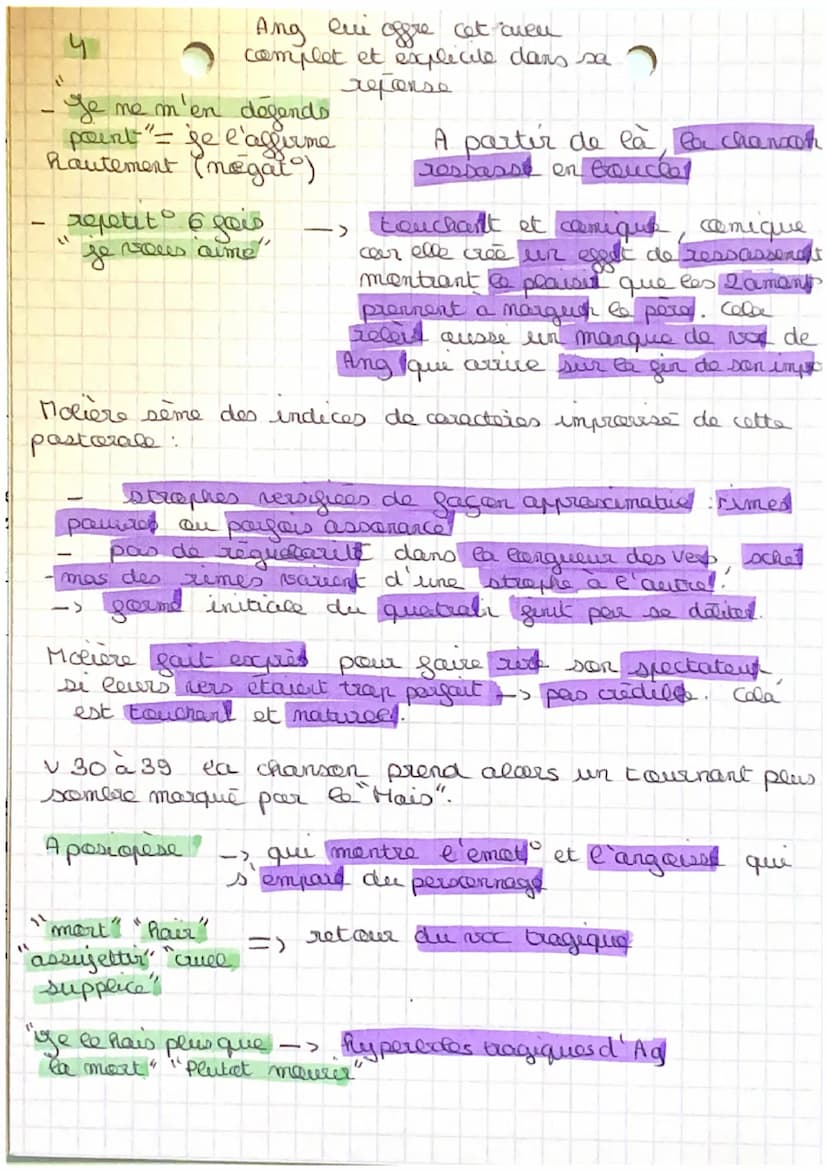 4
Ang lui offre cet aveu
complet et explicite dans sa
réponse
- "Je ne m'en défends
point" = je l'affirme
hautement (négat°)
A partir de là, la chanson
ressasse en boucle
- repetit° 6 fois
"je vous aime"
-> touchant et comique, comique
car elle crée un effet de ressassement
montrant le plaisir que les 2 amant
prennent a marguer le père. Cela
relève aussi un manque de voc de
Ang qui arrive sur la fin de son impr
Molière sème des indices de caractères improvisé de cette
pastorale :
- strophes versifiées de façon approximative : rimes
pauvres ou parfois assonance
- pas de régularité dans la longueur des vers, schet
- mas des rimes varient d'une strophe à l'autre.
-> forme initiale du quatrain finit par se déliter.
Molière fait exprès pour faire rire son spectateur,
si leurs vers étaient trop parfait -> pas crédible. Cela
est touchant et naturel.
v 30 à 39 la chanson prend alors un tournant plus
sombre marqué par le "Mais".
Aposiopèse -> qui montre l'émot° et l'angoisse qui
s'empare du personnage
"mort" "haïr"
"assujettir" "cruel
supplice"
=> retour du voc tragique
"je le hais plus que
la mort" "Plutot mourir"
-> hyperboles tragiques d'Ag